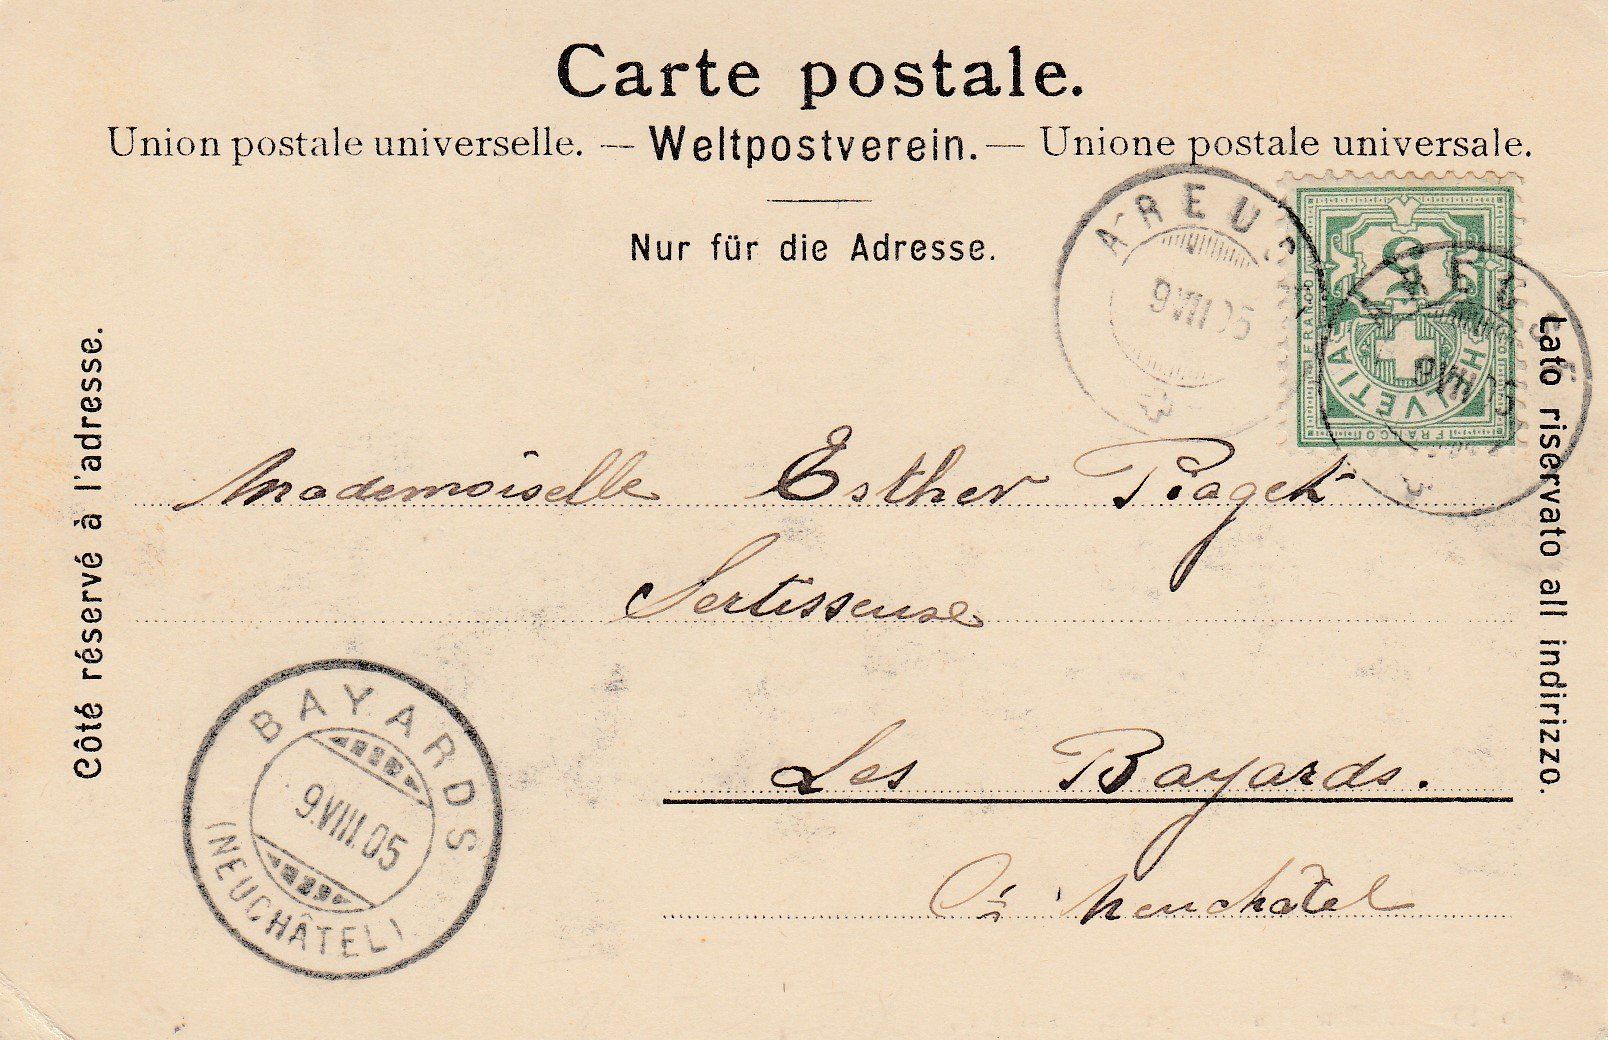 Carte postale.
Union postale universelle. — Weltpostverein. — Unione postale universale.
Nur für die Adresse.
Côté réservé à l'adresse.
Lato riservato all indirizzo.
AREUSE
9 VIII 05
5
FRANCO
HELVETIA
FRANCO
AREUSE
9 VIII 05
Mademoiselle Esther Piaget
Sertisseuse
Les Bayards.
Ct. Neuchâtel
BAYARDS
9.VIII.05
(NEUCHÂTEL)